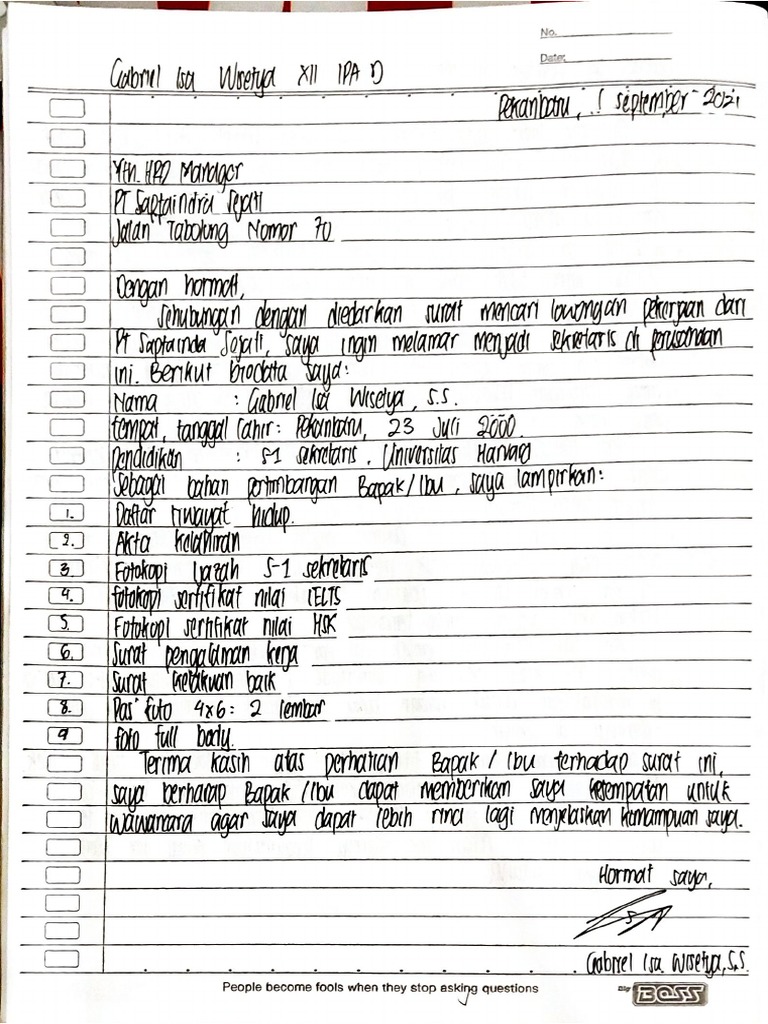 No.
Date:
Gabriel Isa Wisetya XII IPA D
Pekanbaru, 1 September 2021
Yth. HRD Manager
PT Saptaindra Sejati
Jalan Tabolung Nomor 70
Dengan hormat,
Sehubungan dengan diedarkan surat mencari lowongan pekerjaan dari
PT Saptainda Sejati, saya ingin melamar menjadi sekretaris di perusahaan
ini. Berikut biodata saya:
Nama : Gabriel Isa Wisetya, S.S.
tempat, tanggal lahir: Pekanbaru, 23 Juli 2000.
pendidikan : S-1 sekretaris, Universitas Harvard
Sebagai bahan pertimbangan Bapak/Ibu, saya lampirkan:
1. Daftar riwayat hidup.
2. Akta kelahiran
3. Fotokopi ijazah S-1 sekretaris
4. fotokopi sertifikat nilai IELTS
5. Fotokopi sertifikat nilai HSK
6. Surat pengalaman kerja
7. Surat kelakuan baik
8. Pas foto 4x6: 2 lembar
9 foto full body.
Terima kasih atas perhatian Bapak / Ibu terhadap surat ini,
saya berharap Bapak /Ibu dapat memberikan saya kesempatan untuk
wawancara agar saya dapat lebih rinci lagi menjelaskan kemampuan saya.
Hormat saya,
Gabriel Isa Wisetya, S.S.
People become fools when they stop asking questions
Big BOSS